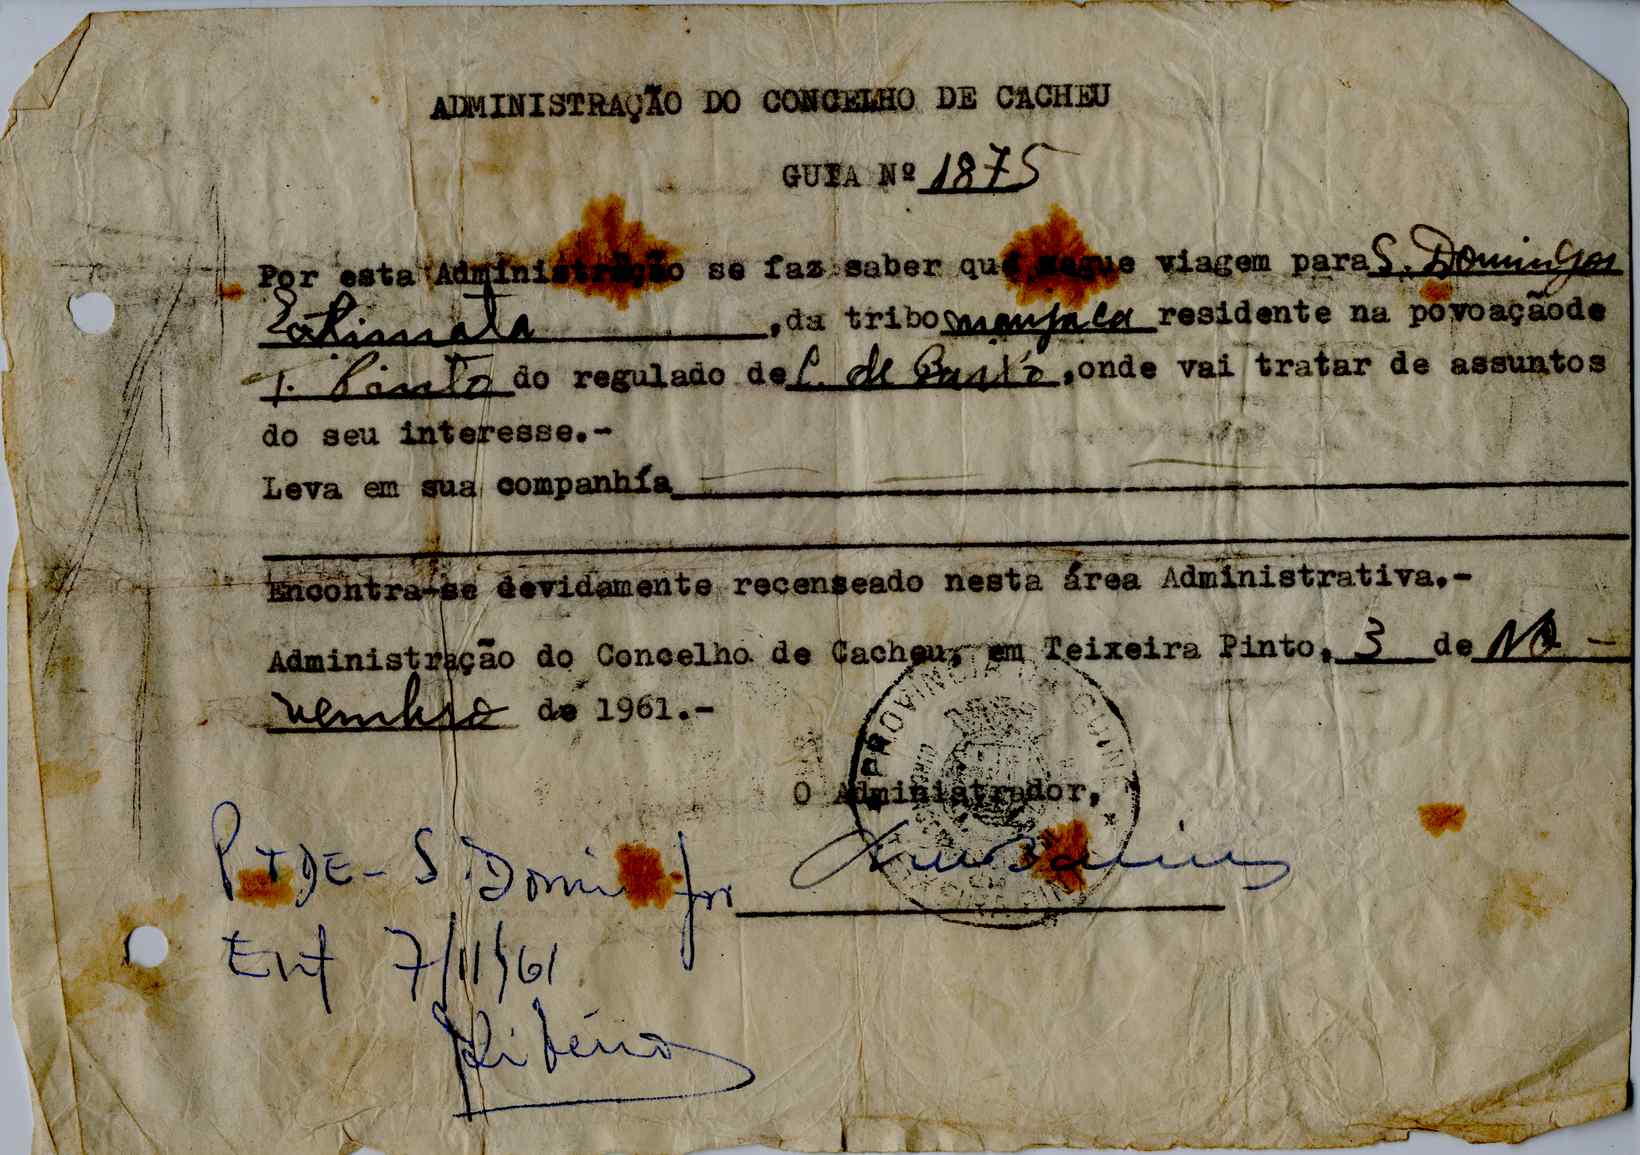 ADMINISTRAÇÃO DO CONCELHO DE CACHEU
GUIA Nº 1875
Por esta Administração se faz saber que segue viagem para S. Domingos
, da tribo manjaca residente na povoaçãode
T. Pinto do regulado de C. de Baixo, onde vai tratar de assuntos
do seu interesse.-
Leva em sua companhía
Encontra-se devidamente recenseado nesta área Administrativa.-
Administração do Concelho de Cacheu, em Teixeira Pinto, 3 de No-
vembro de 1961.-
PROVINCIA DA GUINÉ
O Administrador,
PIDE - S. Domingos
Ent 7/11/61
Ribeiro